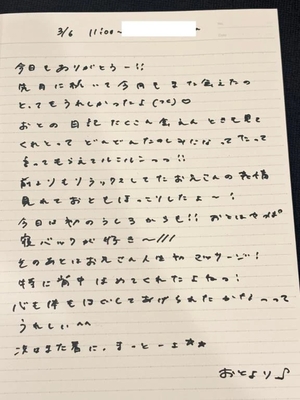 3/6 11:00~
今日もありがとう~!!
先月に続いて今月もまた会えたの
とってもうれしかったよ(つc)♡
おとの日記たくさん
くれとって どんどんたのしみになってたって
言ってもらえてルンルンっっ!!
前よりもリラックスしてたお兄さんの表情
見れておともほっこりしたよ~!
今日は初のうしろからも!! おとはやっぱ
寝バックが好き~///
そのあとはお兄さん人生初マッサージ!
特に背中ほめてくれたよねっ!
心も体もほぐしてあげられたかなっって
うれしい^^
次はまた暑に、まっとーよ★★
おとより♪